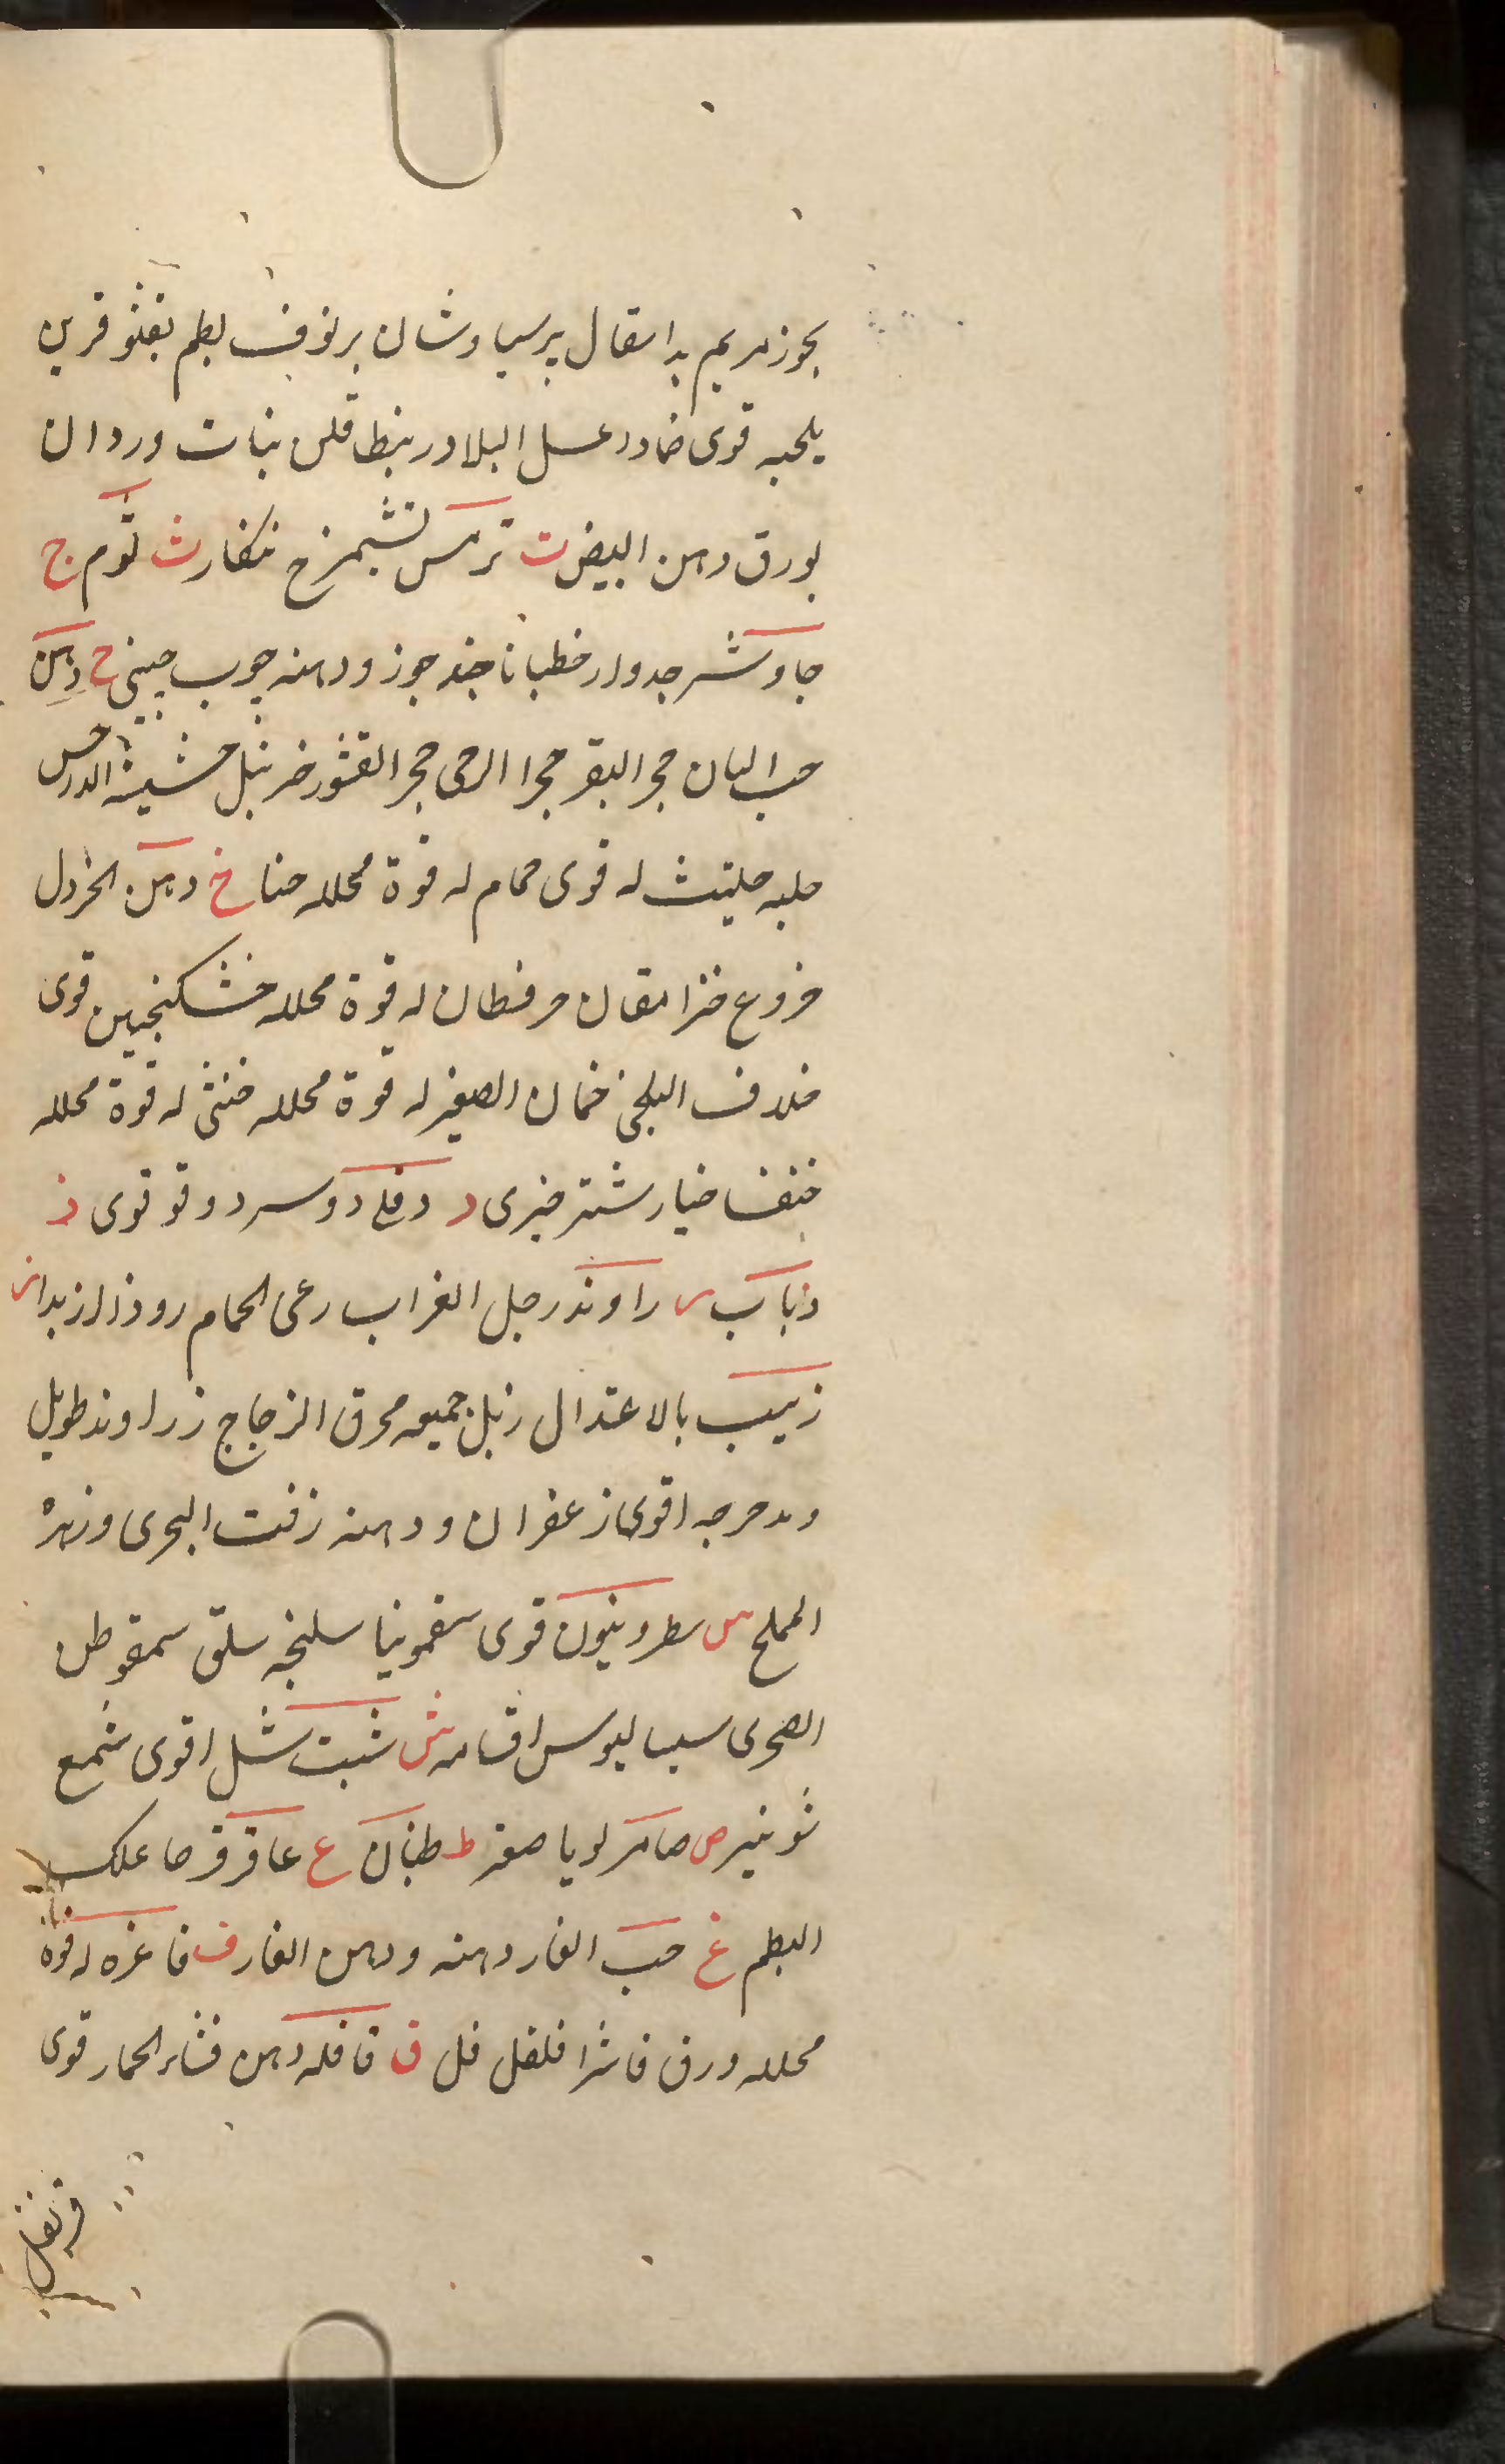 بخور مريم بداسقال برسياوشان برنوف بطم بقثو قرين
يلحبه قوى ضمادا عسل البلادر بنطافلن بنات وردان
بورق دهن البيض ت ترمس تشيمزج تنكار ث ثوم ج
جاوشير جدوار خطيانا جند جوز ودهنه چوب چينى ح دهن
حب البان حجر البقر حجر الرحى حجر القثور خربل حشيشة الدرحس
حلبه حليتث له قوى حمام له قوة محلله حنا خ دهن الخردل
خروع خزامقان حرفطان له قوة محلله خشكنجبين قوى
خلاف البلخى خمان الصغير له قوة محلله خنثى له قوة محلله
خنفسا خيارشنبر خيرى د دفلى دوسر دوقو قوى ذ
ذباب ر راوند رجل الغراب رعى الحمام روذا ز زبد ان
زبيب بالاعتدال زبل جميعه محرق الزجاج زراوند طويل
ومدحرجه اقوى زعفران ودهنه زفت البحرى وزهرة
الملح س سطرونيون قوى سقمونيا سليخه سلق سمقوطن
الصخرى سيساليوس اقسامه ش شبت شل اقوى شمع
شونيز ص صامر لويا صعتر ط طبنان ع عاقرقرحا علك
البطم غ حب الغار دهنه ودهن الغار ف فاغره له قوة
محلله ورق فاشرا فلفل فل ق قاقله دهن قثاء الحمار قوى
قرنفل